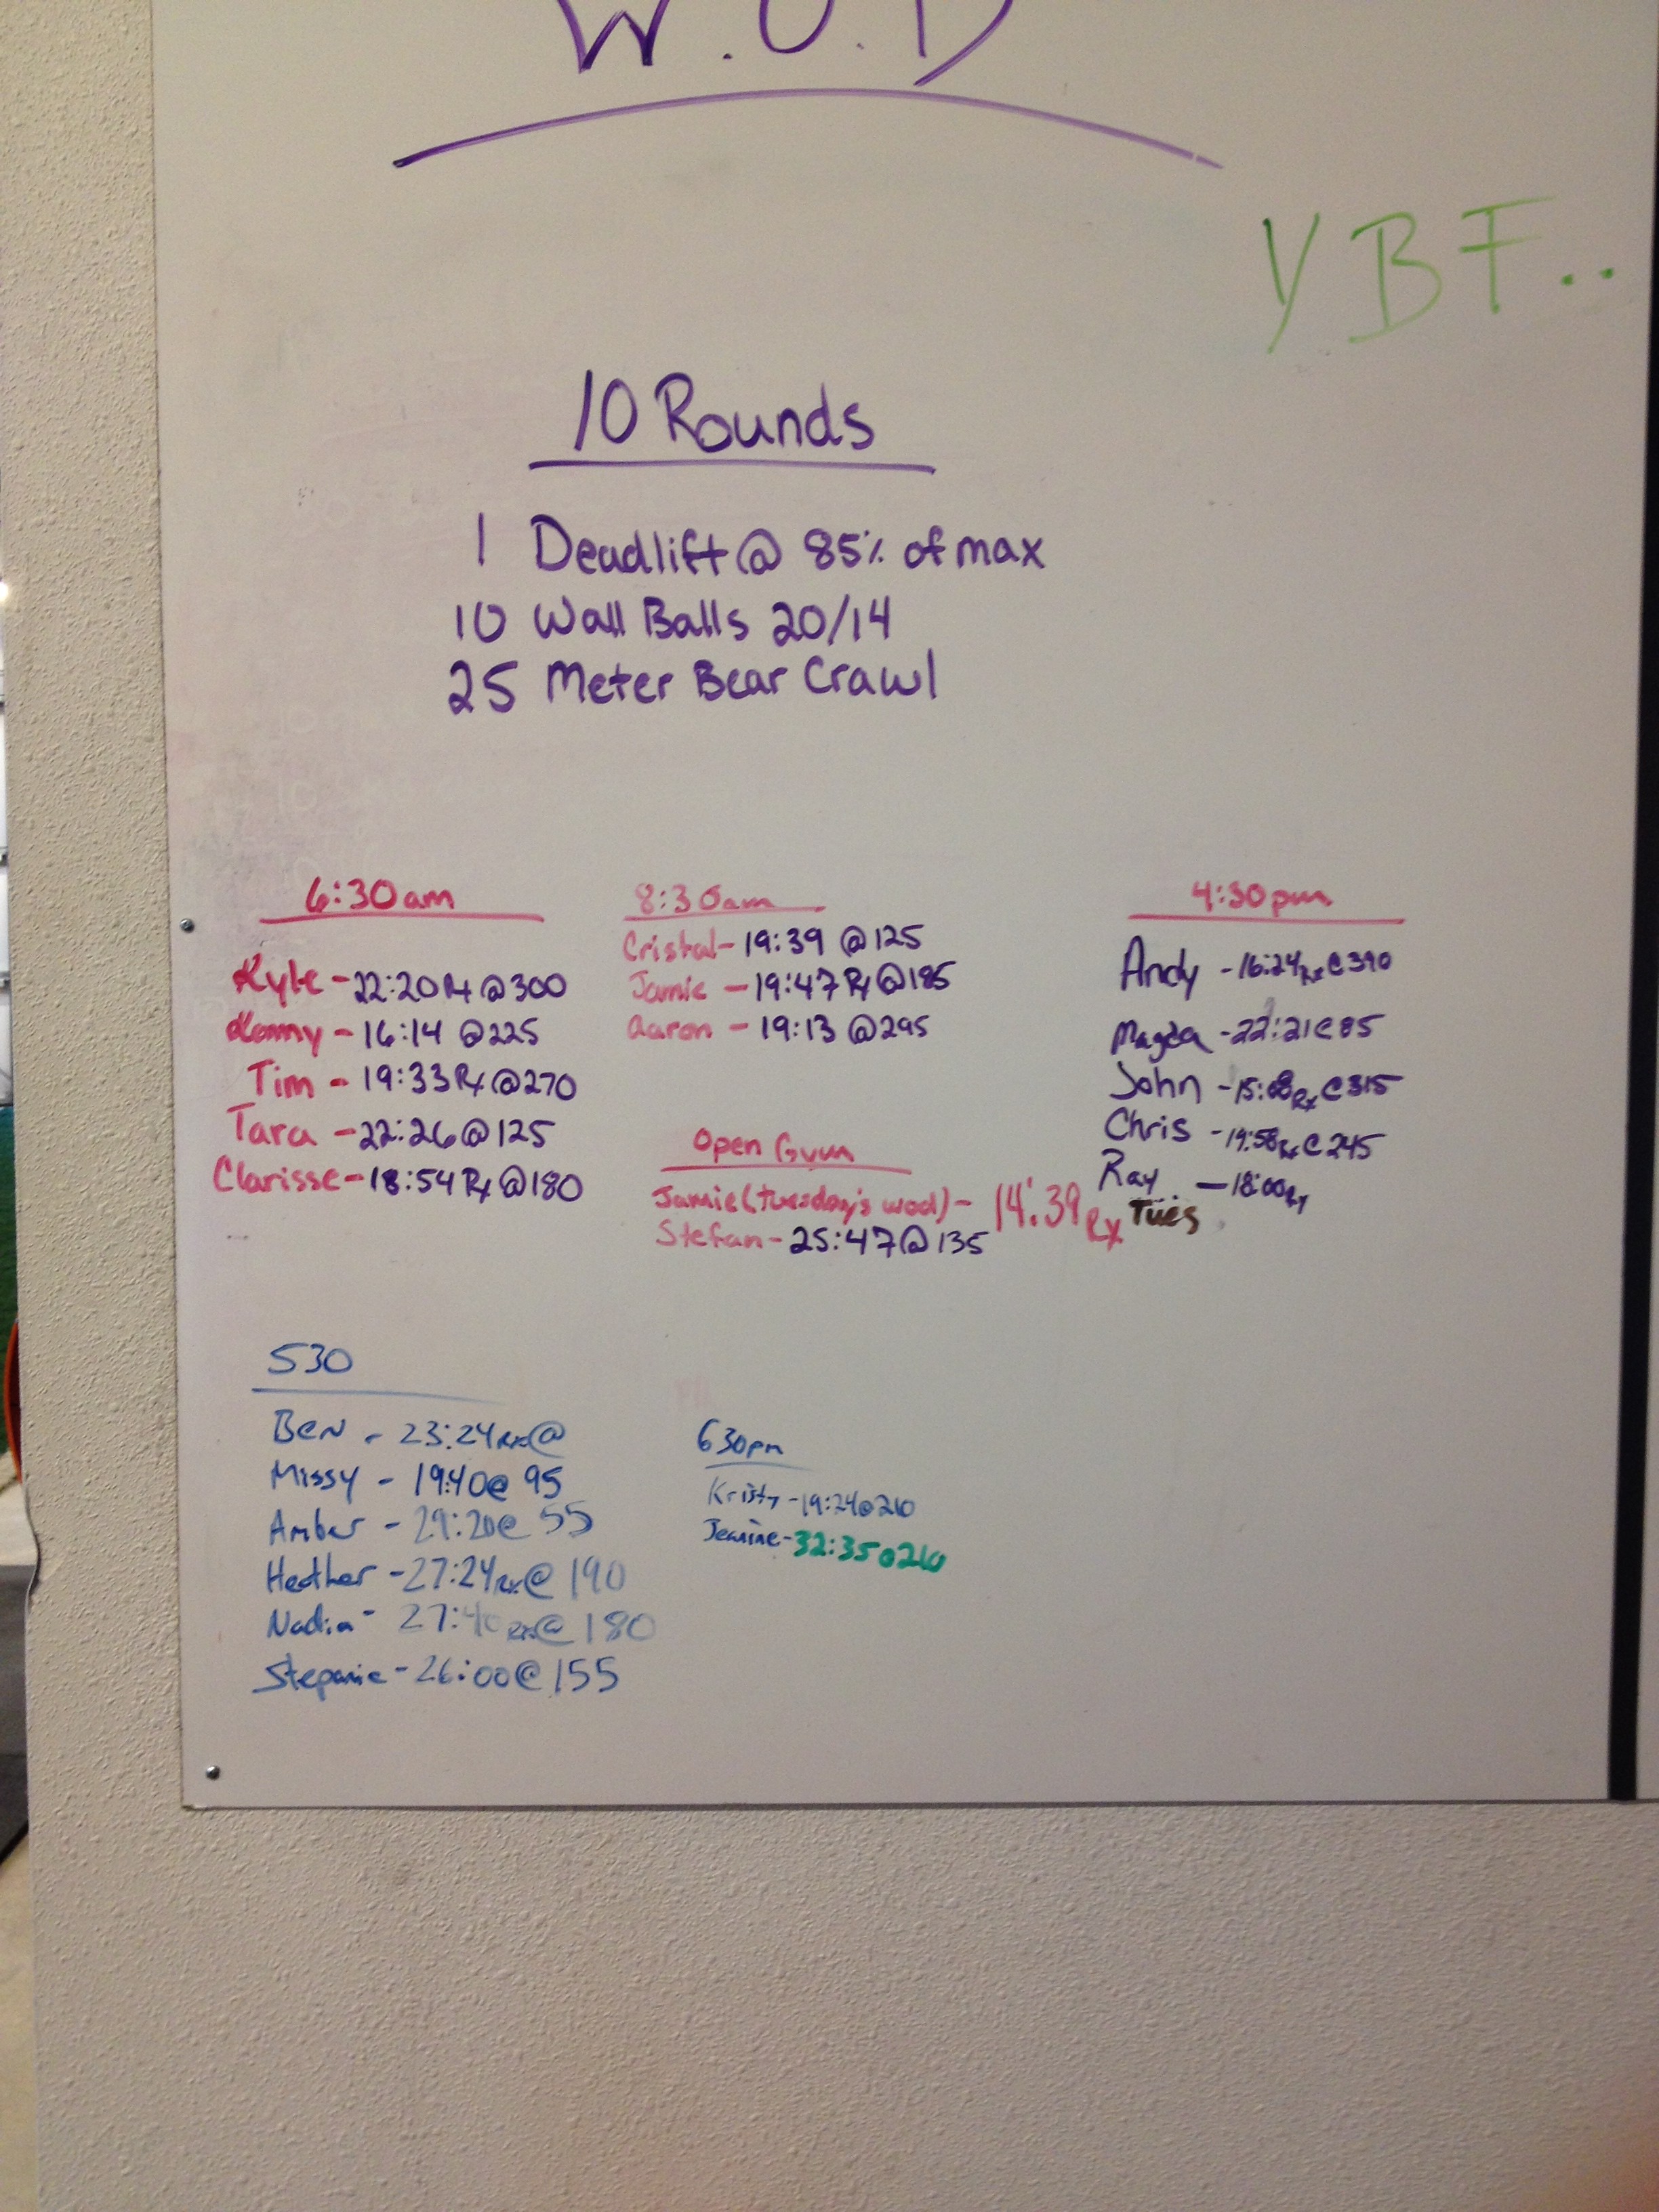 W.O.D
YBF..
10 Rounds
1 Deadlift @ 85% of max
10 Wall Balls 20/14
25 Meter Bear Crawl
6:30am
Kyle - 22:20 Rx @300
Kenny - 16:14 @225
Tim - 19:33 Rx @270
Tara - 22:26 @125
Clarisse - 18:54 Rx @180
8:30am
Cristal - 19:39 @125
Jamie - 19:47 Rx @185
Aaron - 19:13 @295
Open Gym
Jamie (tuesday's wod) - 14:39 Rx
Stefan - 25:47 @135
4:30pm
Andy - 16:24 Rx @390
Magda - 22:21 @ 85
John - Rx @315
Chris - 19:58 Rx @ 245
Ray - 18:00 Rx
Tues
530
Ben - 23:24 Rx @
Missy - 19:40 @ 95
Amber - 29:20 @ 55
Heather - 27:24 Rx @ 190
Nadia - Rx @ 180
Stepanie - 26:00 @ 155
630pm
Kristy - 19:24 @ 210
Jeanine - 32:35 @